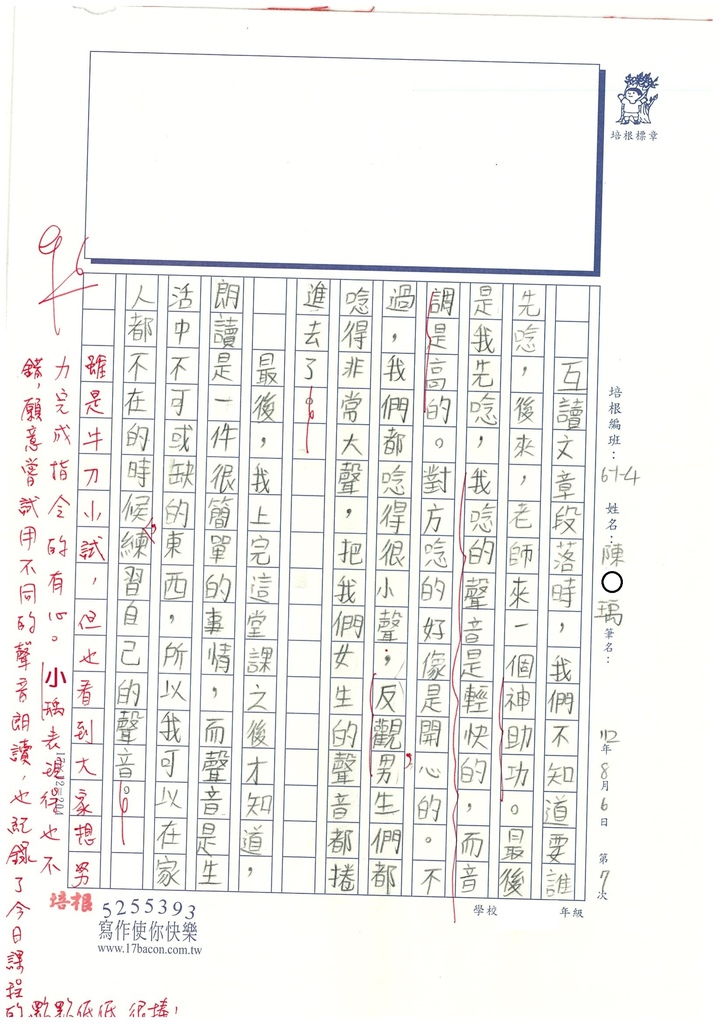 培根標章
培根編班：67-4 姓名：陳○瑀 筆名：
112年8月6日 第7次
年級
學校
互讀文章段落時，我們不知道要誰
先唸，後來，老師來一個神助功。最後
是我先唸，我唸的聲音是輕快的，而音
調是高的。對方唸的好像是開心的。不
過，我們都唸得很小聲；反觀男生們都
唸得非常大聲，把我們女生的聲音都捲
進去了。
最後，我上完這堂課之後才知道，
朗讀是一件很簡單的事情，而聲音是生
活中不可或缺的東西，所以我可以在家
人都不在的時候，練習自己的聲音。
96
雖是牛刀小試，但也看到大家想努
力完成指令的有心。小瑀表現得也不
錯，願意嘗試用不同的聲音朗讀，也紀錄了今日課程
的點點低低，很棒！
培根 5255393
寫作使你快樂
www.17bacon.com.tw